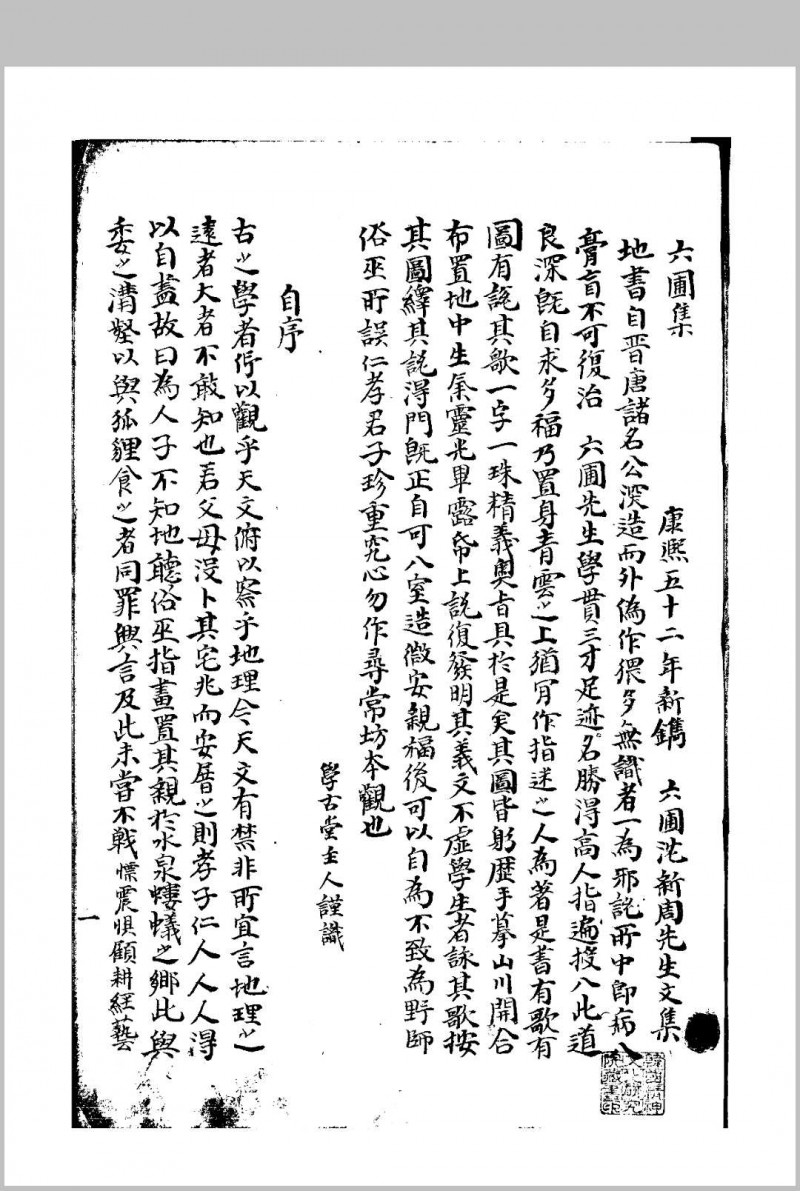 六圃集　康熙五十二年新鐫　六圃沈新周先生文集
地書自晉唐諸名公深造而外偽作猥多無識者一為邪說所中即病入
膏盲不可復治　六圃先生學貫三才足迹名勝得高人指遍授入此道
良深既自求多福乃置身青雲之上猶肎作指迷之人為著是書有歌有
圖有說其歌一字一珠精義奧旨具於是矣其圖皆躬歷手摹山川開合
布置地中生氣靈光畢露帋上說復發明其義文不虛學生者詠其歌按
其圖繹其說得門既正自可入室造微安親福後可以自為不致為野師
俗巫所誤仁孝君子珍重究心勿作尋常坊本觀也
學古堂主人謹識
自序
古之學者仰以觀乎天文俯以察乎地理今天文有禁非所宜言地理之
遠者大者不敢知也若父母沒卜其宅兆而安厝之則孝子仁人人人得
以自盡故曰為人子不知地聽俗巫指畫置其親於水泉螻蟻之鄉此與
委之溝壑以與狐狸食之者同罪興言及此未嘗不戰慄震惧顧耕經藝
一